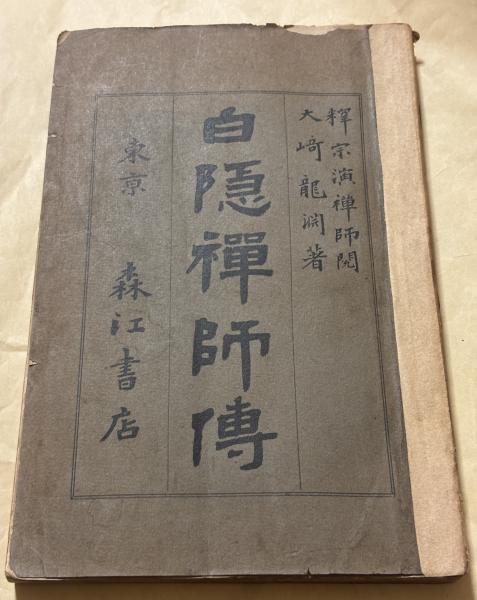 釋宗演禪師閲
大﨑龍淵著
白隱禪師傳
東京 森江書店